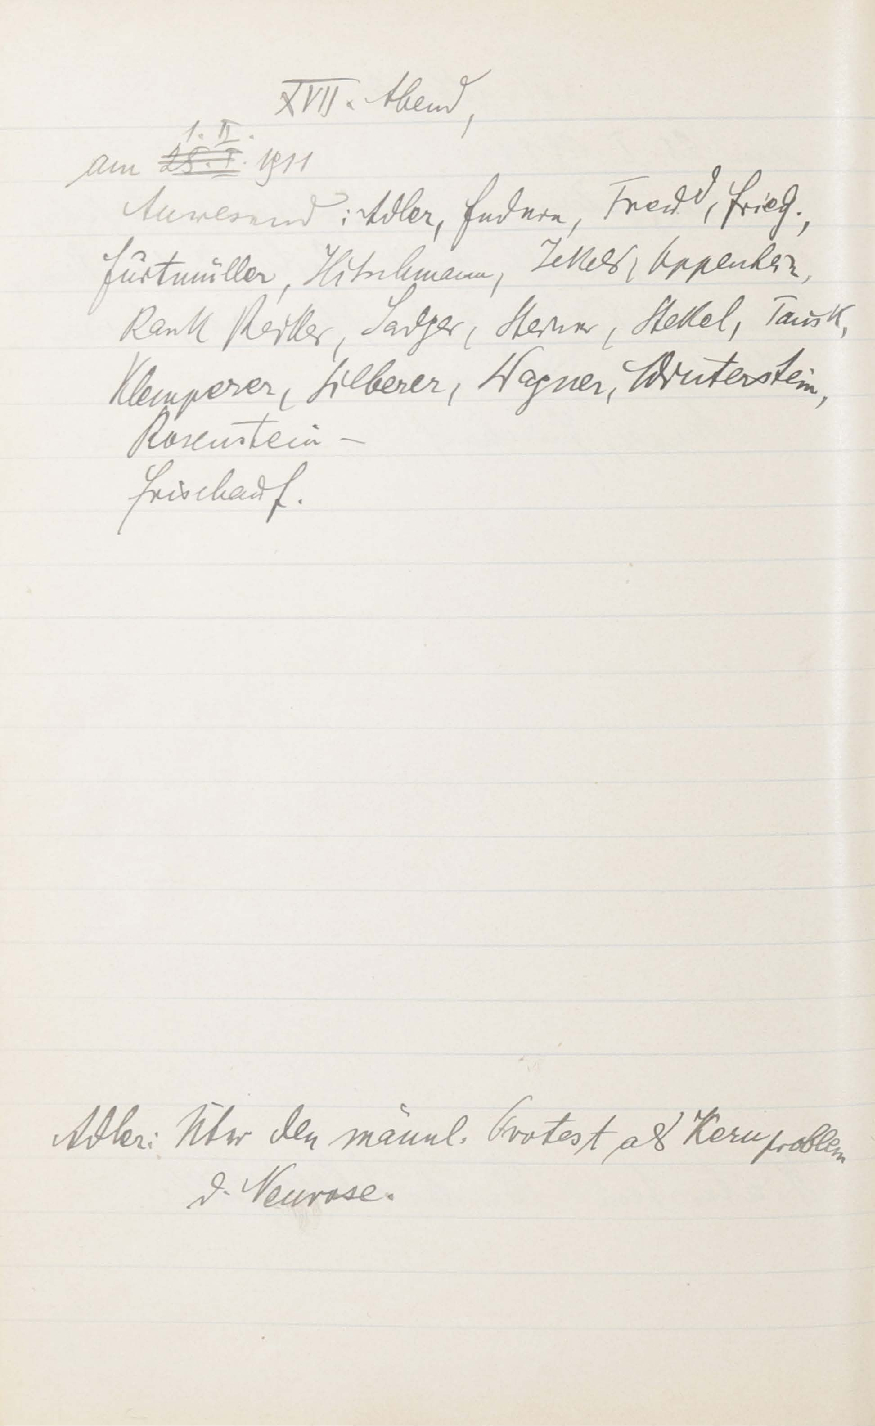 XVII. Abend,
1. II.
am 25. I. 1911
Anwesend: Adler, Federn, Freud, Fried.,
Furtmüller, Hitschmann, Jekels, Oppenheim,
Rank Reitler, Sadger, Steiner, Stekel, Tausk,
Klemperer, Silberer, Wagner, Winterstein,
Rosenstein –
Frischauf.
Adler: Über den männl. Protest als Kernproblem
d. Neurose.